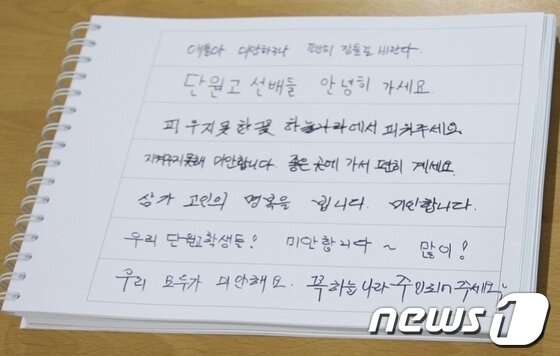 애들아 미안하구나 편히 잠들길 바란다.
단원고 선배들 안녕히 가세요
피우지못한꽃 하늘나라에서 피워주세요.
지켜주지못해 미안합니다. 좋은 곳에 가서 편히 계세요.
삼가 고인의 명복을 빕니다. 미안합니다.
우리 단원고학생들! 미안합니다 ~ 많이!
우리 모두가 미안해요. 꼭 하늘나라 주세요~
news1